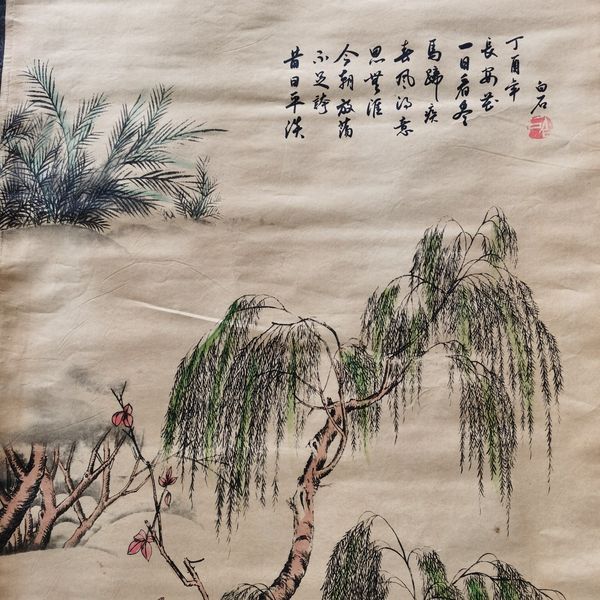 昔日平淡
不足誇
今朝放蕩
思無涯
春風得意
馬蹄疾
一日看尽
長安花
丁酉年
白石